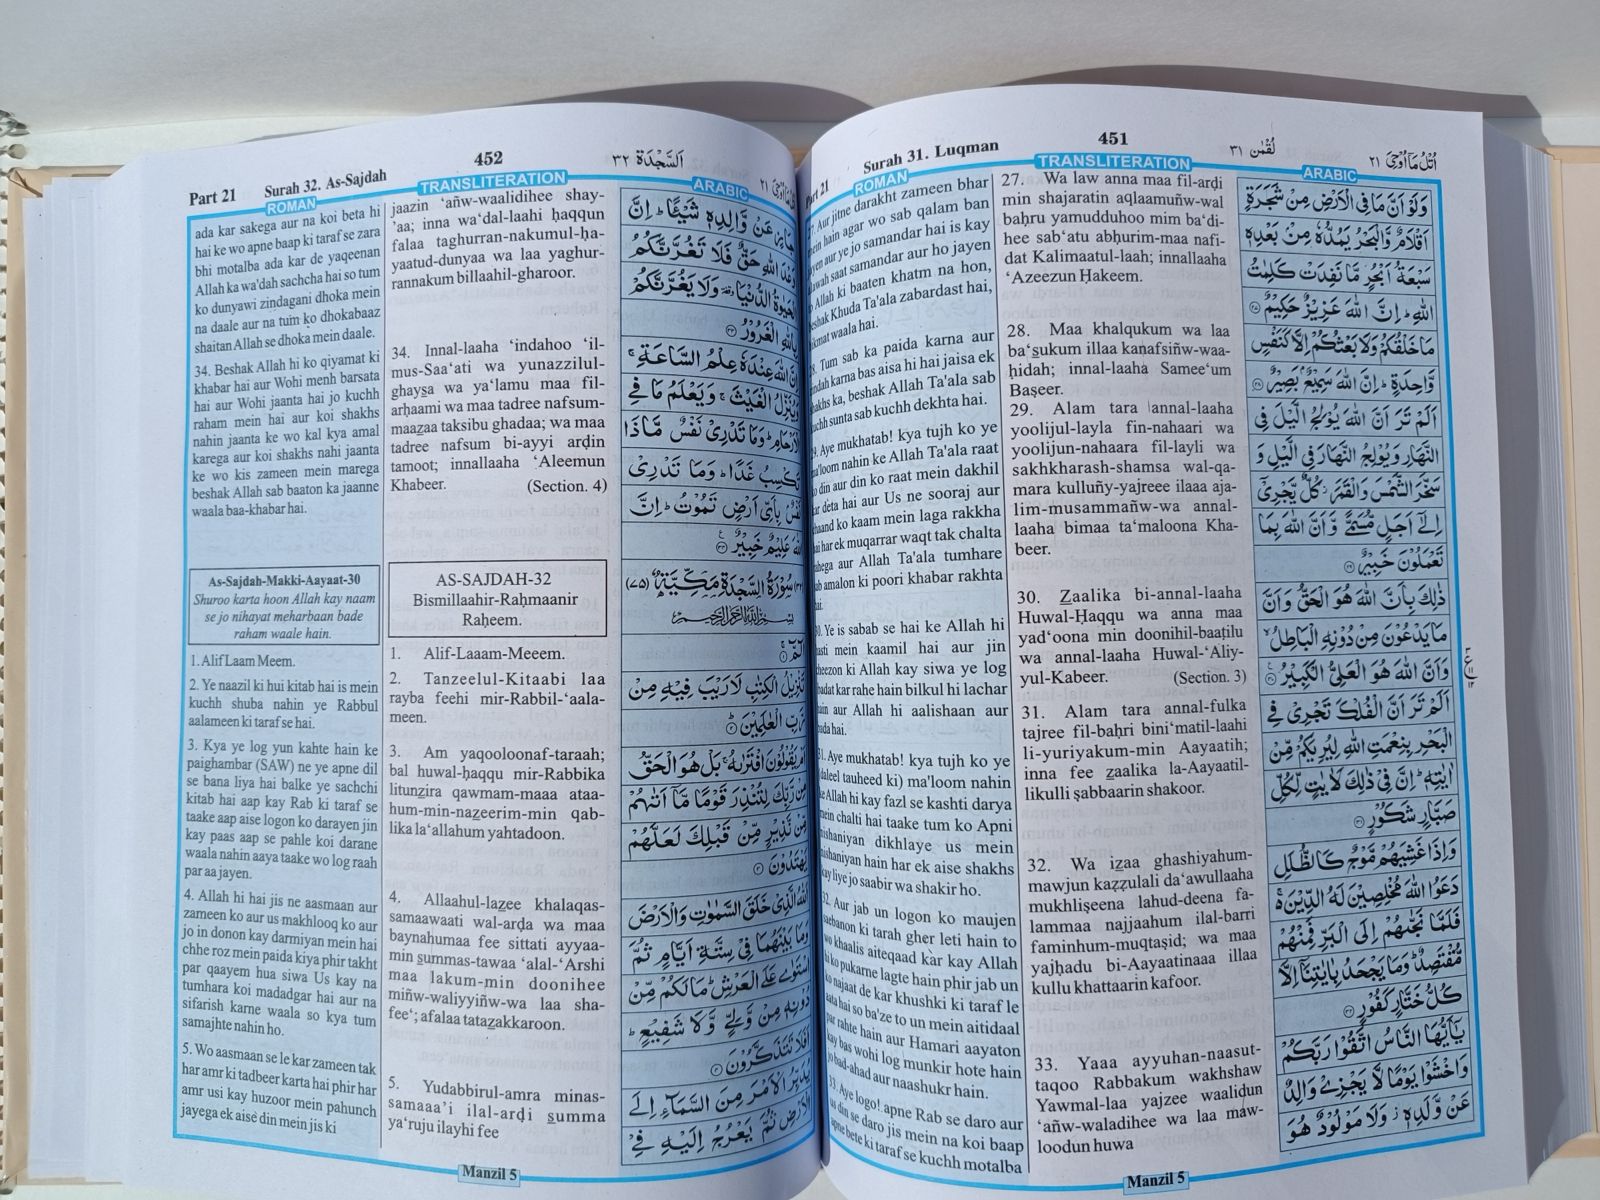 Part 21
Surah 31. Luqman
451
لُقْمٰن ٣١
اُتْلُ مَآ اُوْحِیَ ٢١
ROMAN
TRANSLITERATION
ARABIC
Aur jitne darakht zameen bhar
hain agar wo sab qalam ban
aur ye jo samandar hai is kay
saat samandar aur ho jayen
Allah ki baaten khatm na hon,
beshak Khuda Ta'ala zabardast hai,
hikmat waala hai.
Tum sab ka paida karna aur
karna bas aisa hi hai jaisa ek
ka, beshak Allah Ta'ala sab
kuchh sunta sab kuchh dekhta hai.
Aye mukhatab! kya tujh ko ye
ma'loom nahin ke Allah Ta'ala raat
ko din aur din ko raat mein dakhil
kar deta hai aur Us ne sooraj aur
chaand ko kaam mein laga rakkha
hai har ek muqarrar waqt tak chalta
rahega aur Allah Ta'ala tumhare
sab amalon ki poori khabar rakhta
hai.
30. Ye is sabab se hai ke Allah hi
hasti mein kaamil hai aur jin
cheezon ki Allah kay siwa ye log
ibadat kar rahe hain bilkul hi lachar
hain aur Allah hi aalishaan aur
bada hai.
31. Aye mukhatab! kya tujh ko ye
(daleel tauheed ki) ma'loom nahin
ke Allah hi kay fazl se kashti darya
mein chalti hai taake tum ko Apni
nishaniyan dikhlaye us mein
nishaniyan hain har ek aise shakhs
kay liye jo saabir wa shakir ho.
32. Aur jab un logon ko maujen
saebanon ki tarah gher leti hain to
wo khaalis aiteqaad kar kay Allah
hi ko pukarne lagte hain phir jab un
ko najaat de kar khushki ki taraf le
aata hai so ba'ze to un mein aitidaal
par rahte hain aur Hamari aayaton
kay bas wohi log munkir hote hain
jo bad-ahad aur naashukr hain.
33. Aye logo! apne Rab se daro aur
us din se daro jis mein na koi baap
apne bete ki taraf se kuchh motalba
27. Wa law anna maa fil-arḍi
min shajaratin aqlaamuñw-wal
baḥru yamudduhoo mim ba‘di-
hee sab‘atu abḥurim-maa nafi-
dat Kalimaatul-laah; innallaaha
‘Azeezun Ḥakeem.
28. Maa khalqukum wa laa
ba‘sukum illaa kanafsiñw-waa-
ḥidah; innal-laaha Samee‘um
Baṣeer.
29. Alam tara annal-laaha
yoolijul-layla fin-nahaari wa
yoolijun-nahaara fil-layli wa
sakhkharash-shamsa wal-qa-
mara kulluñy-yajreee ilaaa aja-
lim-musammañw-wa annal-
laaha bimaa ta‘maloona Kha-
beer.
30. Zaalika bi-annal-laaha
Huwal-Ḥaqqu wa anna maa
yad‘oona min doonihil-baaṭilu
wa annal-laaha Huwal-‘Aliy-
yul-Kabeer. (Section. 3)
31. Alam tara annal-fulka
tajree fil-baḥri bini‘matil-laahi
li-yuriyakum-min Aayaatih;
inna fee zaalika la-Aayaatil-
likulli ṣabbaarin shakoor.
32. Wa izaa ghashiyahum-
mawjun kazzulali da‘awullaaha
mukhliṣeena lahud-deena fa-
lammaa najjaahum ilal-barri
faminhum-muqtaṣid; wa maa
yajḥadu bi-Aayaatinaaa illaa
kullu khattaarin kafoor.
33. Yaaa ayyuhan-naasut-
taqoo Rabbakum wakhshaw
Yawmal-laa yajzee waalidun
‘añw-waladihee wa laa maw-
loodun huwa
وَلَوْ اَنَّ مَا فِی الْاَرْضِ مِنْ شَجَرَةٍ
اَقْلَامٌ وَّالْبَحْرُ یَمُدُّهٗ مِنْۢ بَعْدِهٖ
سَبْعَةُ اَبْحُرٍ مَّا نَفِدَتْ كَلِمٰتُ
اللّٰهِ ؕ اِنَّ اللّٰهَ عَزِیْزٌ حَكِیْمٌ ۝
مَا خَلْقُكُمْ وَلَا بَعْثُكُمْ اِلَّا كَنَفْسٍ
وَّاحِدَةٍ ؕ اِنَّ اللّٰهَ سَمِیْعٌۢ بَصِیْرٌ ۝
اَلَمْ تَرَ اَنَّ اللّٰهَ یُوْلِجُ الَّیْلَ فِی
النَّهَارِ وَیُوْلِجُ النَّهَارَ فِی الَّیْلِ وَ
سَخَّرَ الشَّمْسَ وَالْقَمَرَ ز كُلٌّ یَّجْرِیْۤ
اِلٰۤی اَجَلٍ مُّسَمًّی وَّاَنَّ اللّٰهَ بِمَا
تَعْمَلُوْنَ خَبِیْرٌ ۝
ذٰلِكَ بِاَنَّ اللّٰهَ هُوَ الْحَقُّ وَاَنَّ
مَا یَدْعُوْنَ مِنْ دُوْنِهِ الْبَاطِلُ ۙ
وَاَنَّ اللّٰهَ هُوَ الْعَلِیُّ الْكَبِیْرُ ۝
اَلَمْ تَرَ اَنَّ الْفُلْكَ تَجْرِیْ فِی
الْبَحْرِ بِنِعْمَتِ اللّٰهِ لِیُرِیَكُمْ مِّنْ
اٰیٰتِهٖ ؕ اِنَّ فِیْ ذٰلِكَ لَاٰیٰتٍ لِّكُلِّ
صَبَّارٍ شَكُوْرٍ ۝
وَاِذَا غَشِیَهُمْ مَّوْجٌ كَالظُّلَلِ
دَعَوُا اللّٰهَ مُخْلِصِیْنَ لَهُ الدِّیْنَ ۚ
فَلَمَّا نَجّٰىهُمْ اِلَی الْبَرِّ فَمِنْهُمْ
مُّقْتَصِدٌ ؕ وَمَا یَجْحَدُ بِاٰیٰتِنَاۤ اِلَّا
كُلُّ خَتَّارٍ كَفُوْرٍ ۝
یٰۤاَیُّهَا النَّاسُ اتَّقُوْا رَبَّكُمْ
وَاخْشَوْا یَوْمًا لَّا یَجْزِیْ وَالِدٌ
عَنْ وَّلَدِهٖ ز وَلَا مَوْلُوْدٌ هُوَ
Manzil 5
Part 21
Surah 32. As-Sajdah
452
اَلسَّجْدَة ٣٢
ROMAN
TRANSLITERATION
ARABIC
ada kar sakega aur na koi beta hi
hai ke wo apne baap ki taraf se zara
bhi motalba ada kar de yaqeenan
Allah ka wa'dah sachcha hai so tum
ko dunyawi zindagani dhoka mein
na daale aur na tum ko dhokabaaz
shaitan Allah se dhoka mein daale.
34. Beshak Allah hi ko qiyamat ki
khabar hai aur Wohi menh barsata
hai aur Wohi jaanta hai jo kuchh
raham mein hai aur koi shakhs
nahin jaanta ke wo kal kya amal
karega aur koi shakhs nahi jaanta
ke wo kis zameen mein marega
beshak Allah sab baaton ka jaanne
waala baa-khabar hai.
As-Sajdah-Makki-Aayaat-30
Shuroo karta hoon Allah kay naam
se jo nihayat meharbaan bade
raham waale hain.
1. Alif Laam Meem.
2. Ye naazil ki hui kitab hai is mein
kuchh shuba nahin ye Rabbul
aalameen ki taraf se hai.
3. Kya ye log yun kahte hain ke
paighambar (SAW) ne ye apne dil
se bana liya hai balke ye sachchi
kitab hai aap kay Rab ki taraf se
taake aap aise logon ko darayen jin
kay paas aap se pahle koi darane
waala nahin aaya taake wo log raah
par aa jayen.
4. Allah hi hai jis ne aasmaan aur
zameen ko aur us makhlooq ko aur
jo in donon kay darmiyan mein hai
chhe roz mein paida kiya phir takht
par qaayem hua siwa Us kay na
tumhara koi madadgar hai aur na
sifarish karne waala so kya tum
samajhte nahin ho.
5. Wo aasmaan se le kar zameen tak
har amr ki tadbeer karta hai phir har
amr usi kay huzoor mein pahunch
jayega ek aise din mein jis ki
jaazin ‘añw-waalidihee shay-
’aa; inna wa‘dal-laahi ḥaqqun
falaa taghurran-nakumul-ḥa-
yaatud-dunyaa wa laa yaghur-
rannakum billaahil-gharoor.
34. Innal-laaha ‘indahoo ‘il-
mus-Saa‘ati wa yunazzilul-
ghaysa wa ya‘lamu maa fil-
arḥaami wa maa tadree nafsum-
maazaa taksibu ghadaa; wa maa
tadree nafsum bi-ayyi arḍin
tamoot; innallaaha ‘Aleemun
Khabeer. (Section. 4)
AS-SAJDAH-32
Bismillaahir-Raḥmaanir
Raḥeem.
1. Alif-Laaam-Meeem.
2. Tanzeelul-Kitaabi laa
rayba feehi mir-Rabbil-‘aala-
meen.
3. Am yaqooloonaf-taraah;
bal huwal-ḥaqqu mir-Rabbika
litunzira qawmam-maaa ataa-
hum-min-nazeerim-min qab-
lika la‘allahum yahtadoon.
4. Allaahul-lazee khalaqas-
samaawaati wal-arḍa wa maa
baynahumaa fee sittati ayyaa-
min summas-tawaa ‘alal-‘Arshi
maa lakum-min doonihee
miñw-waliyyiñw-wa laa sha-
fee‘; afalaa tatazakkaroon.
5. Yudabbirul-amra minas-
samaaa’i ilal-arḍi summa
ya‘ruju ilayhi fee
جَازٍ عَنْ وَّالِدِهٖ شَیْـًٔا ؕ اِنَّ
وَعْدَ اللّٰهِ حَقٌّ فَلَا تَغُرَّنَّكُمُ
الْحَیٰوةُ الدُّنْیَا ٥ وَلَا یَغُرَّنَّكُمْ
بِاللّٰهِ الْغَرُوْرُ ۝
اِنَّ اللّٰهَ عِنْدَهٗ عِلْمُ السَّاعَةِ ۚ
وَیُنَزِّلُ الْغَیْثَ ۚ وَیَعْلَمُ مَا فِی
الْاَرْحَامِ ؕ وَمَا تَدْرِیْ نَفْسٌ مَّاذَا
تَكْسِبُ غَدًا ؕ وَمَا تَدْرِیْ
نَفْسٌۢ بِاَیِّ اَرْضٍ تَمُوْتُ ؕ اِنَّ
اللّٰهَ عَلِیْمٌ خَبِیْرٌ ۝
سُوْرَةُ السَّجْدَةِ مَكِّیَّةٌ (٧٥)
بِسْمِ اللّٰهِ الرَّحْمٰنِ الرَّحِیْمِ
الٓمّٓ ۝
تَنْزِیْلُ الْكِتٰبِ لَا رَیْبَ فِیْهِ مِنْ
رَّبِّ الْعٰلَمِیْنَ ۝
اَمْ یَقُوْلُوْنَ افْتَرٰىهُ ۚ بَلْ هُوَ الْحَقُّ
مِنْ رَّبِّكَ لِتُنْذِرَ قَوْمًا مَّاۤ اَتٰىهُمْ
مِّنْ نَّذِیْرٍ مِّنْ قَبْلِكَ لَعَلَّهُمْ
یَهْتَدُوْنَ ۝
اَللّٰهُ الَّذِیْ خَلَقَ السَّمٰوٰتِ وَالْاَرْضَ
وَمَا بَیْنَهُمَا فِیْ سِتَّةِ اَیَّامٍ ثُمَّ
اسْتَوٰی عَلَی الْعَرْشِ ؕ مَا لَكُمْ مِّنْ
دُوْنِهٖ مِنْ وَّلِیٍّ وَّلَا شَفِیْعٍ ؕ
اَفَلَا تَتَذَكَّرُوْنَ ۝
یُدَبِّرُ الْاَمْرَ مِنَ السَّمَآءِ اِلَی
الْاَرْضِ ثُمَّ یَعْرُجُ اِلَیْهِ فِیْ
Manzil 5